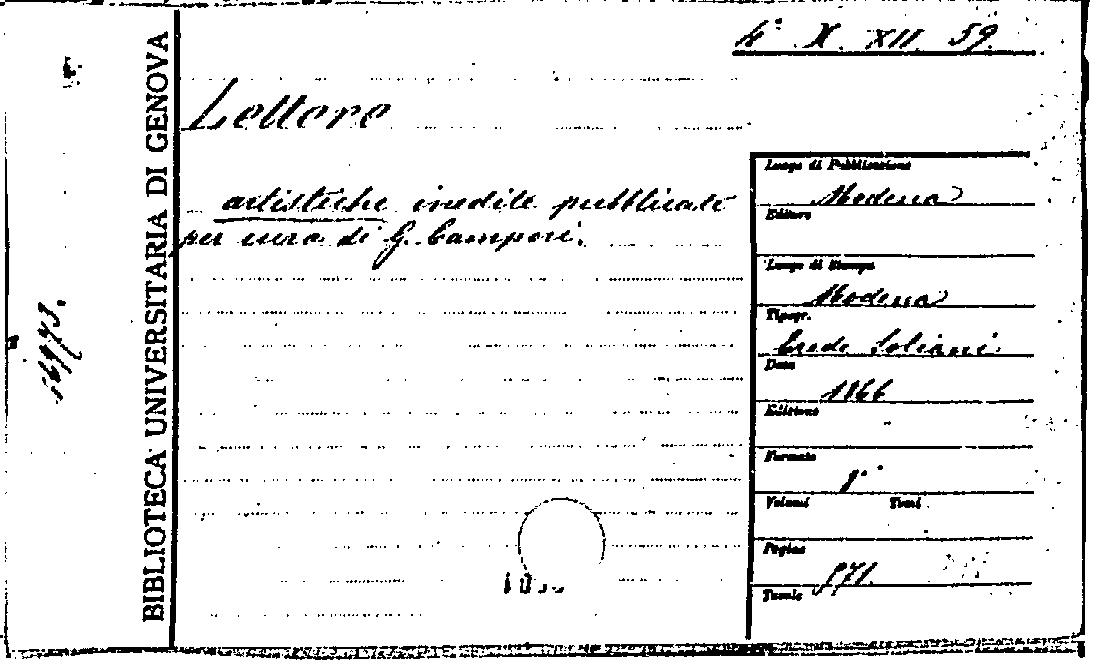 4° X. XII. 59.
BIBLIOTECA UNIVERSITARIA DI GENOVA
Lettere
artistiche inedite pubblicate
per cura di G. Campori.
Luogo di Pubblicazione
Modena
Editore
Luogo di Stampa
Modena
Tipogr.
Eredi Soliani
Data
1866
Edizione
Formato
8°
Volumi Tomi
Pagine
571.
Tavole